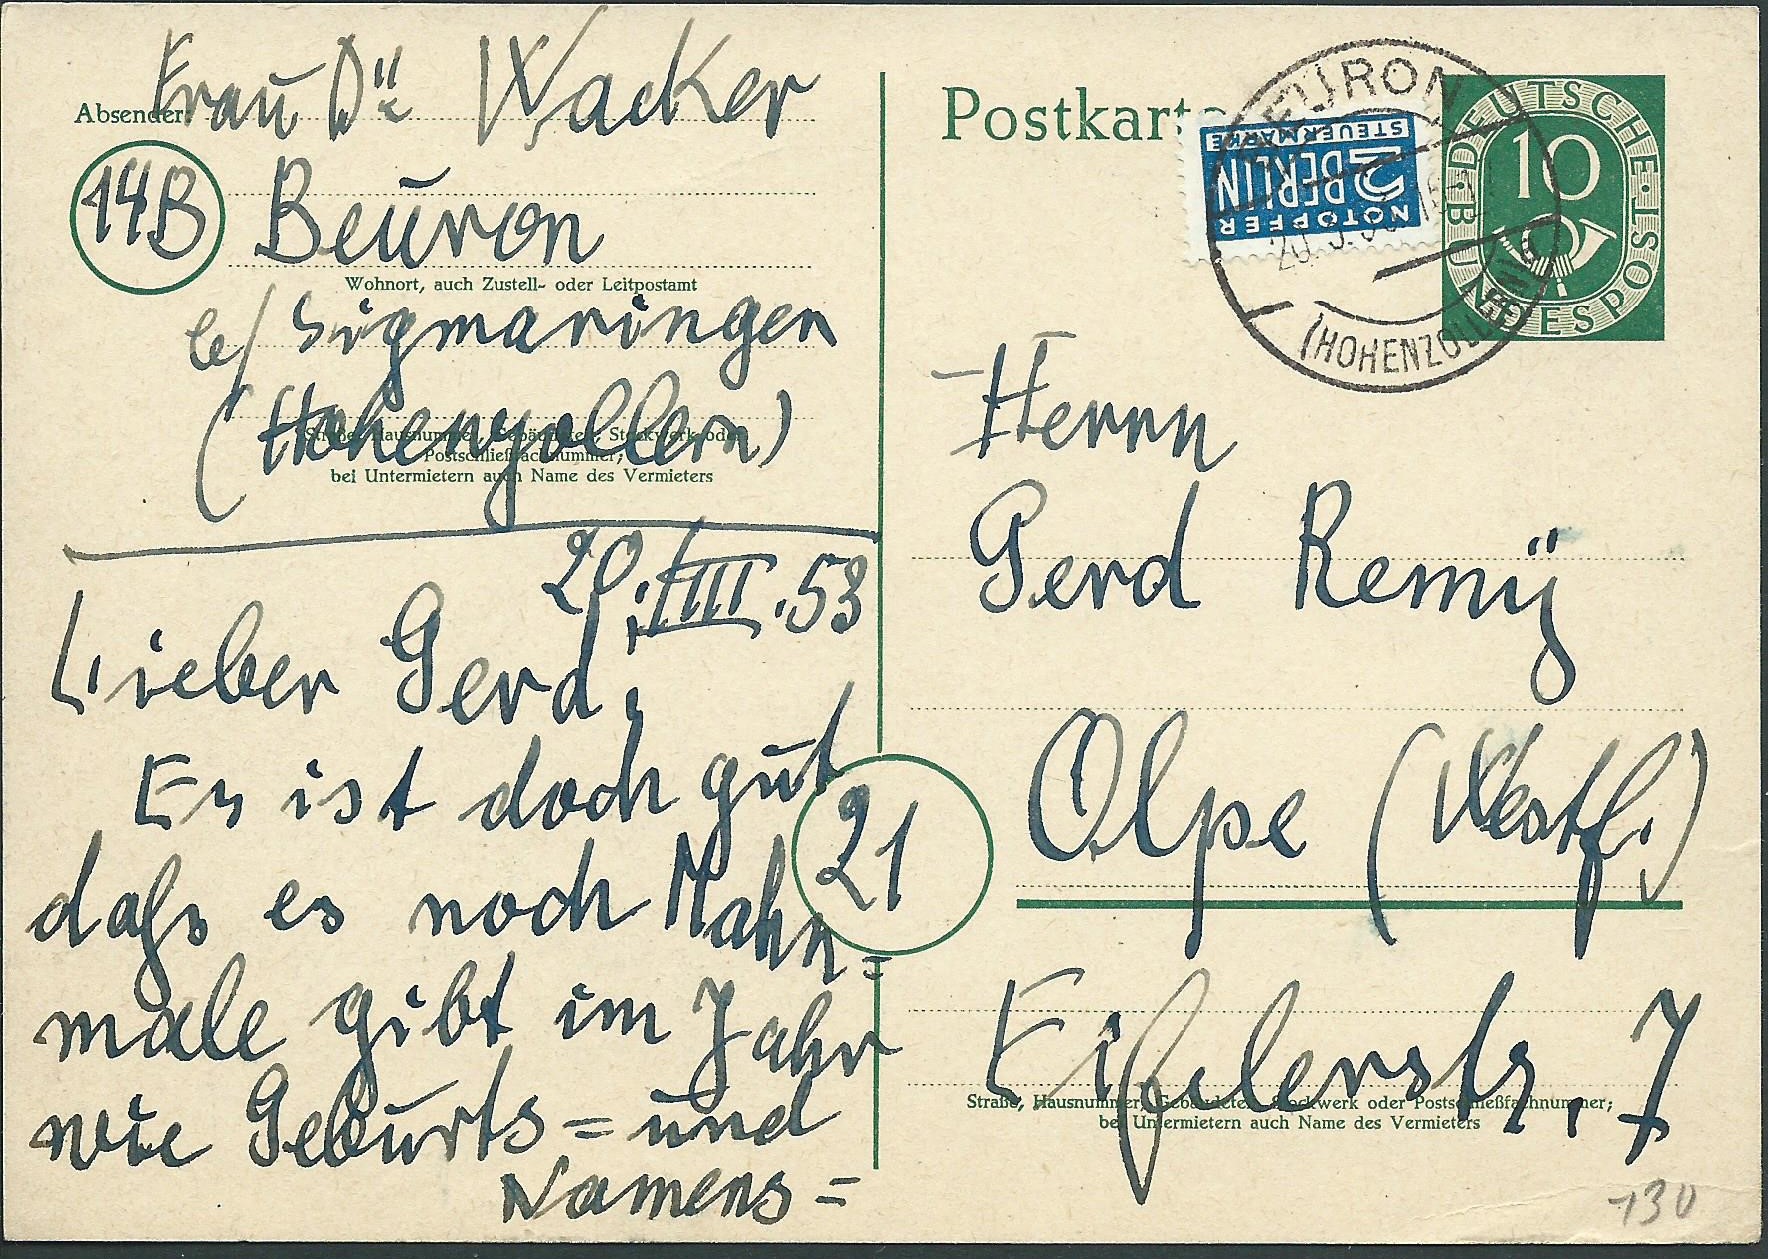 Absender: Frau Dr Wacker
14B Beuron
Wohnort, auch Zustell- oder Leitpostamt
b/ Sigmaringen
(Hohenzollern)
Straße, Hausnummer, Gebäudeteil, Stockwerk oder
Postschließfachnummer;
bei Untermietern auch Name des Vermieters
20.III.53
Lieber Gerd,
Es ist doch gut
daß es noch Mahn=
male gibt im Jahr
wie Geburts= und
Namens=
Postkarte
NOTOPFER
2 BERLIN
STEUERMARKE
BEURON
(HOHENZOLLERN)
DEUTSCHE BUNDESPOST
10
Herrn
Gerd Remÿ
21 Olpe (Westf.)
Straße, Hausnummer, Gebäudeteil, Stockwerk oder Postschließfachnummer;
bei Untermietern auch Name des Vermieters
130